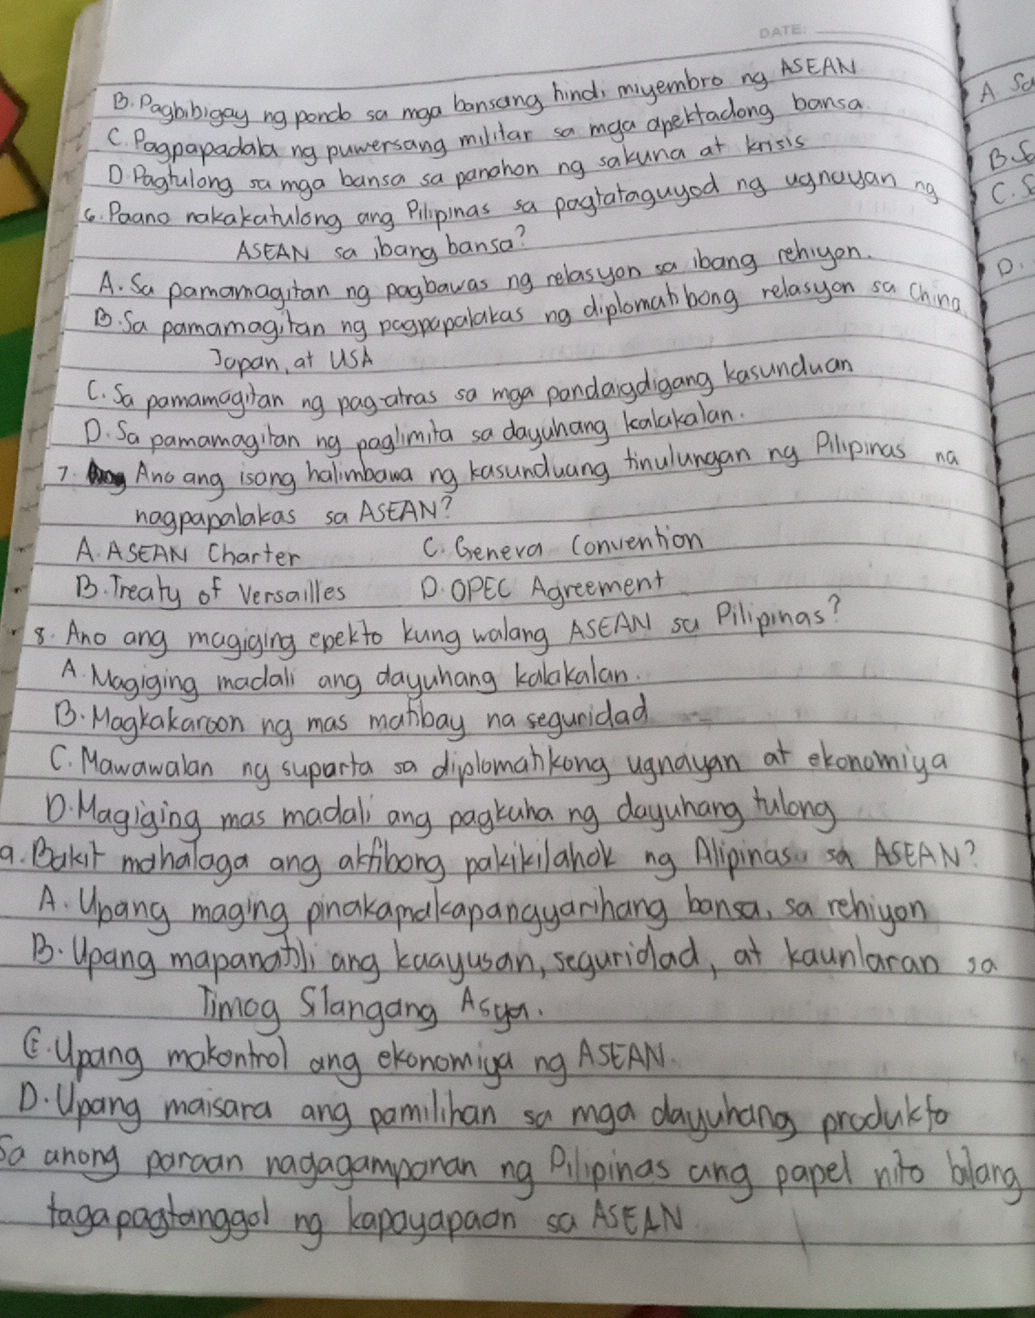 DATE:
B. Pagbibigay ng pondo sa mga bansang hindi miyembro ng ASEAN
C. Pagpapadala ng puwersang militar sa mga apektadong bansa.
D. Pagtulong sa mga bansa sa panahon ng sakuna at krisis
6. Paano nakakatulong ang Pilipinas sa pagtataguyod ng ugnayan ng
ASEAN sa ibang bansa?
A. Sa pamamagitan ng pagbawas ng relasyon sa ibang rehiyon.
B. Sa pamamagitan ng pagpapalakas ng diplomatibong relasyon sa China,
Japan, at USA
C. Sa pamamagitan ng pag-atras sa mga pandaigdigang kasunduan
D. Sa pamamagitan ng paglimita sa dayuhang kalakalan.
7. Ano ang isang halimbawa ng kasunduang tinulungan ng Pilipinas na
nagpapalakas sa ASEAN?
A. ASEAN Charter C. Geneva Convention
B. Treaty of Versailles D. OPEC Agreement
8. Ano ang magiging epekto kung walang ASEAN sa Pilipinas?
A. Magiging madali ang dayuhang kalakalan.
B. Magkakaroon ng mas matibay na seguridad
C. Mawawalan ng suparta sa diplomatikong ugnayan at ekonomiya
D. Magiging mas madali ang pagkuha ng dayuhang tulong
9. Bakit mahalaga ang aktibong pakikilahok ng Pilipinas sa ASEAN?
A. Upang maging pinakamakapangyarihang bansa, sa rehiyon
B. Upang mapanatili ang kaayusan, seguridad, at kaunlaran sa
Timog Silangang Asya.
C. Upang makontrol ang ekonomiya ng ASEAN.
D. Upang maisara ang pamilihan sa mga dayuhang produkto
Sa anong paraan nagagampanan ng Pilipinas ang papel nito bilang
tagapagtanggol ng kapayapaan sa ASEAN
A. Sa
B. S
C. S
D.